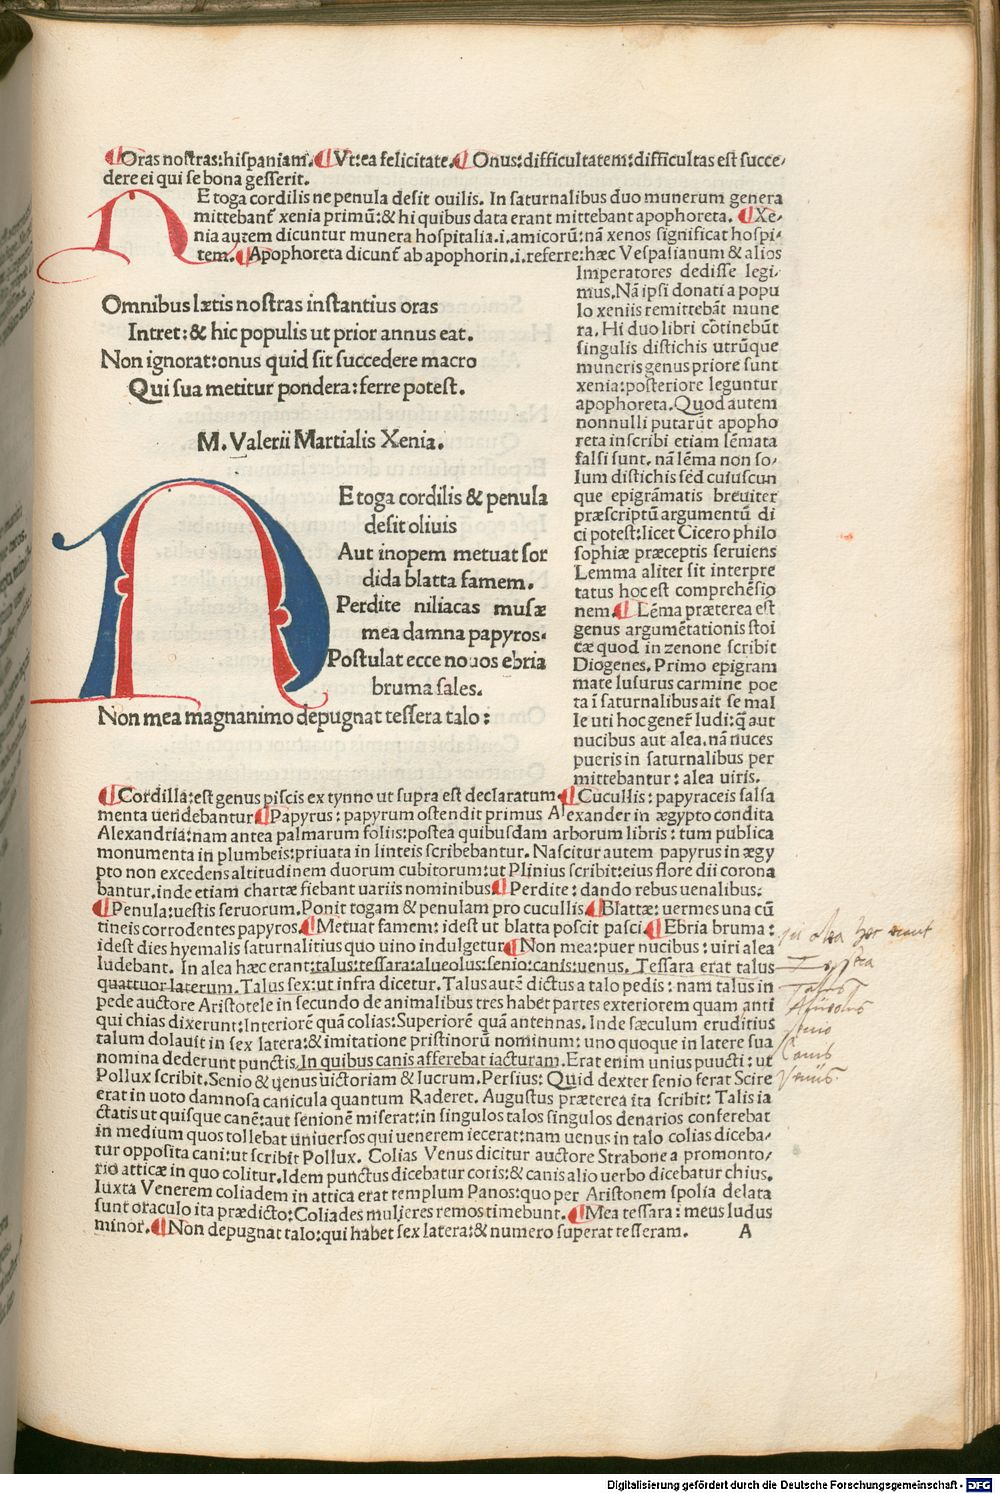 ¶Oras nostras:hispaniam.¶Vt:ea felicitate.¶Onus:difficultatem:difficultas est succe,
dere ei qui se bona gesserit.
NE toga cordilis ne penula desit ouilis. In saturnalibus duo munerum genera
mittebant᷑ xenia primū:& hi quibus data erant mittebant apophoreta. ¶Xe,
nia autem dicuntur munera hospitalia.i.amicorū:nā xenos significat hospi,
tem.¶Apophoreta dicunt᷑ ab apophorin.i.referre:hæc Vespasianum & alios
Imperatores dedisse legi,
mus.Nā ipsi donati a popu
lo xeniis remittebāt mune
ra. Hi duo libri cōtinebūt
singulis distichis utrūque
muneris genus priore sunt
xenia:posteriore leguntur
apophoreta.Quod autem
nonnulli putarūt apopho
reta inscribi etiam sēmata
falsi sunt. nā lēma non so,
lum distichis sed cuiuscun
que epigrāmatis breuiter
præscriptū argumentū di
ci potest:licet Cicero philo
sophiæ præceptis seruiens
Lemma aliter sit interpre
tatus hoc est comprehēsio
nem.¶Lēma præterea est
genus argumētationis stoi
cæ quod in zenone scribit
Diogenes. Primo epigram
mate lusurus carmine poe
ta ī saturnalibus ait se mal
le uti hoc gener᷑ ludi:q̄ aut
nucibus aut alea.nā nuces
pueris in saturnalibus per
mittebantur:alea uiris.
Omnibus lætis nostras instantius oras
Intret:& hic populis ut prior annus eat.
Non ignorat:onus quid sit succedere macro
Qui sua metitur pondera:ferre potest.
M. Valerii Martialis Xenia.
NE toga cordilis & penula
desit oliuis
Aut inopem metuat sor
dida blatta famem.
Perdite niliacas musæ
mea damna papyros.
Postulat ecce nouos ebria
bruma sales.
Non mea magnanimo depugnat tessera talo:
¶Cordilla:est genus piscis ex tynno ut supra est declaratum.¶Cucullis:papyraceis salsa
menta uendebantur¶Papyrus:papyrum ostendit primus Alexander in ægypto condita
Alexandria:nam antea palmarum foliis:postea quibusdam arborum libris:tum publica
monumenta in plumbeis:priuata in linteis scribebantur. Nascitur autem papyrus in ægy
pto non excedens altitudinem duorum cubitorum:ut Plinius scribit:eius flore dii corona
bantur.inde etiam chartæ fiebant uariis nominibus¶Perdite:dando rebus uenalibus:
¶Penula:uestis seruorum.Ponit togam & penulam pro cucullis.¶Blattæ:uermes una cū
tineis corrodentes papyros.¶Metuat famem:idest ut blatta poscit pasci.¶Ebria bruma:
idest dies hyemalis saturnalitius quo uino indulgetur¶Non mea:puer nucibus:uiri alea
ludebant. In alea hæc erant:talus:tessara:alueolus:senio:canis:uenus. Tessara erat talus
quattuor laterum.Talus sex:ut infra dicetur.Talus autē dictus a talo pedis:nam talus in
pede auctore Aristotele in secundo de animalibus tres habet partes exteriorem quam anti
qui chias dixerunt:Interiorē quā colias:Superiorē quā antennas. Inde sæculum eruditius
talum dolauit in sex latera:& imitatione pristinorū nominum: uno quoque in latere sua
nomina dederunt punctis.In quibus canis afferebat iacturam.Erat enim unius puucti:ut
Pollux scribit.Senio & uenus uictoriam & lucrum.Persius:Quid dexter senio ferat Scire
erat in uoto damnosa canicula quantum Raderet. Augustus præterea ita scribit: Talis ia
ctatis ut quisque canē:aut senionē miserat:in singulos talos singulos denarios conferebat
in medium quos tollebat uniuersos qui uenerem iecerat:nam uenus in talo colias diceba,
tur opposita cani:ut scribit Pollux. Colias Venus dicitur auctore Strabone a promonto,
rio atticæ in quo colitur.Idem punctus dicebatur cotis:& canis alio uerbo dicebatur chius.
Iuxta Venerem coliadem in attica erat templum Panos:quo per Aristonem spolia delata
sunt oraculo ita prædicto:Coliades mulieres remos timebunt.¶Mea tessara:meus ludus
minor.¶Non depugnat talo:qui habet sex latera:& numero superat tesseram.
A
alea
Talus
Alueolus
Senio
Canis
Venus
Digitalisierung gefördert durch die Deutsche Forschungsgemeinschaft - DFG